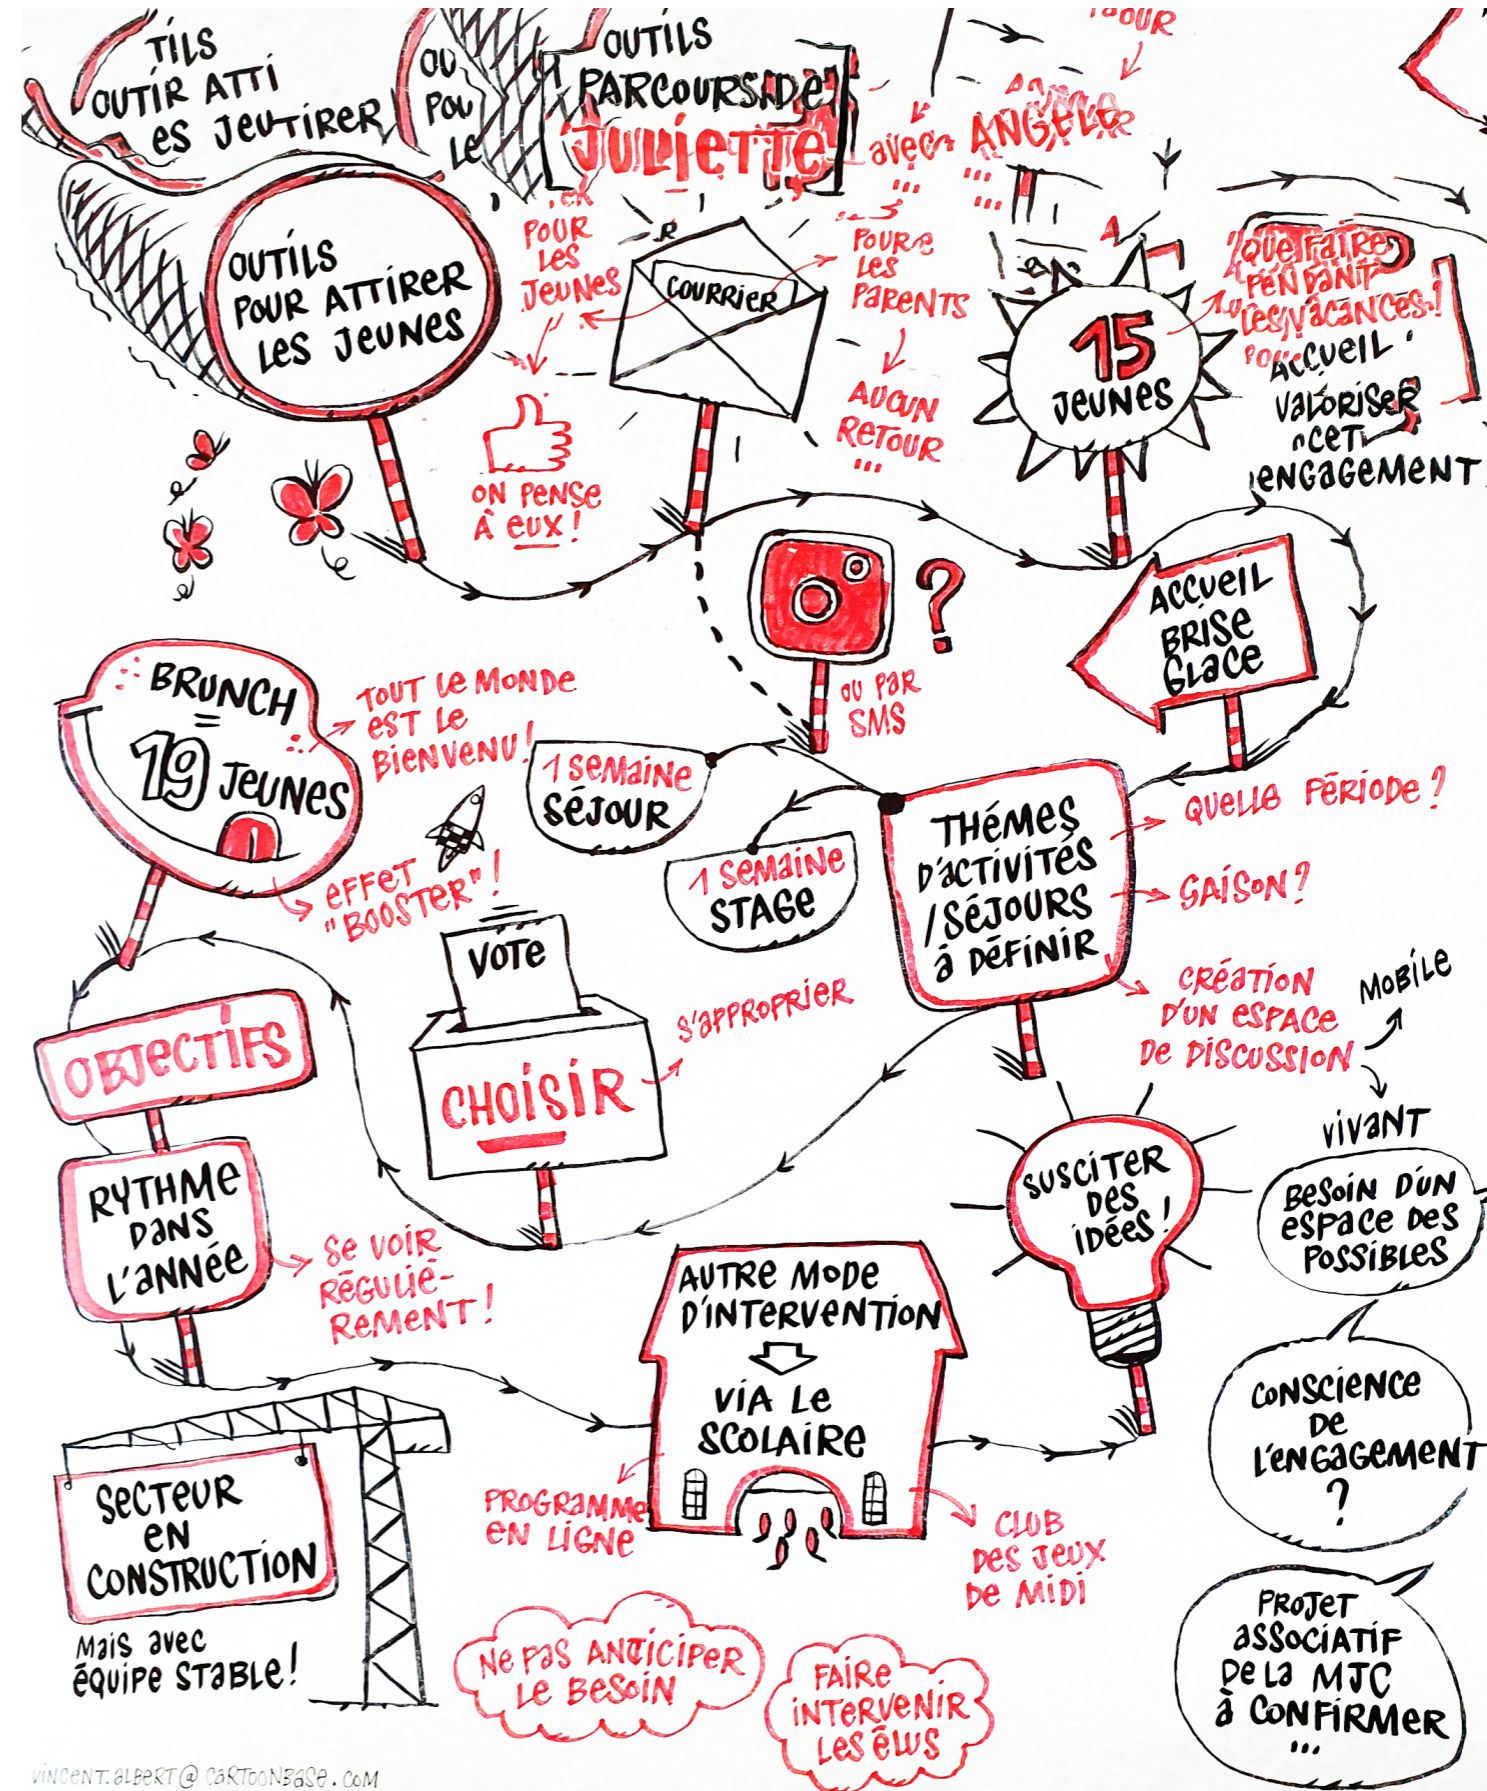 TILS
OUTIR ATTI
ES JEUTIRER
OU
POU
LE
OUTILS
PARCOURS DE
JULIETTE
avec ANGÈLE
...
...
OUTILS
POUR ATTIRER
LES JEUNES
POUR
LES
JEUNES
ON PENSE
À EUX !
COURRIER
POUR
LES
PARENTS
AUCUN
RETOUR
...
15
JEUNES
QUE FAIRE
PENDANT
LES VACANCES !
ACCUEIL
VALORISER
CET
ENGAGEMENT
?
OU PAR
SMS
ACCUEIL
BRISE
GLACE
BRUNCH
=
19 JEUNES
TOUT LE MONDE
EST LE
BIENVENU !
EFFET
"BOOSTER" !
1 SEMAINE
SÉJOUR
1 SEMAINE
STAGE
THÉMES
D'ACTIVITÉS
/SÉJOURS
à DÉFINIR
QUELLE PÉRIODE ?
GAISON ?
CRÉATION
D'UN ESPACE
DE DISCUSSION
MOBILE
VIVANT
VOTE
CHOISIR
S'APPROPRIER
OBJECTIFS
RYTHME
DANS
L'ANNÉE
SE VOIR
RÉGULIÉ-
REMENT !
SUSCITER
DES
IDÉES !
BESOIN D'UN
ESPACE DES
POSSIBLES
AUTRE MODE
D'INTERVENTION
VIA LE
SCOLAIRE
PROGRAMME
EN LIGNE
CLUB
DES JEUX
DE MIDI
CONSCIENCE
DE
L'ENGAGEMENT
?
SECTEUR
EN
CONSTRUCTION
MAIS AVEC
ÉQUIPE STABLE !
NE PAS ANTICIPER
LE BESOIN
FAIRE
INTERVENIR
LES ÉLUS
PROJET
ASSOCIATIF
DE LA MJC
à CONFIRMER
...
VINCENT.ALBERT@CARTOONBASE.COM